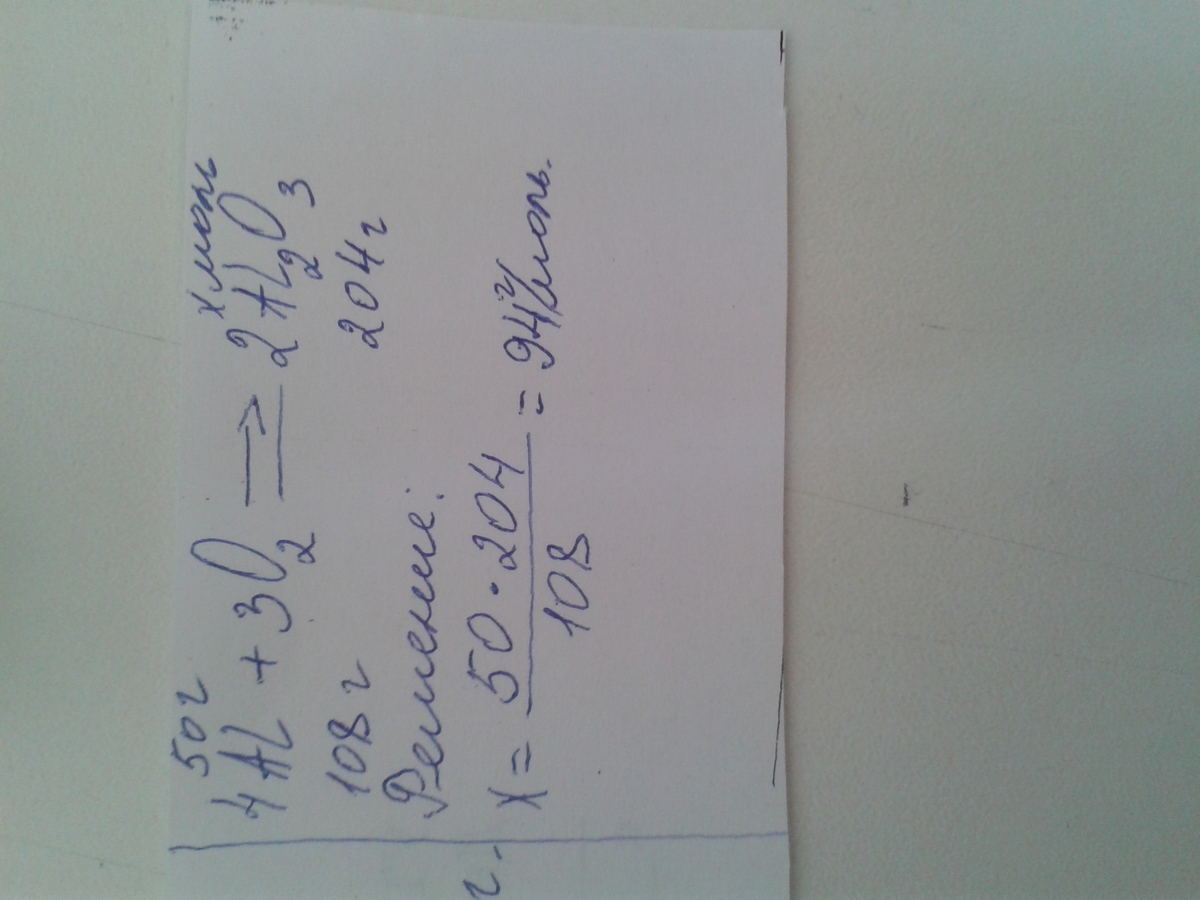 50г х моль
4Al + 3O₂ ⟹ 2Al₂O₃
108г 204г
Решение:
г. х = 50 · 204 / 108 = 94 г/моль.